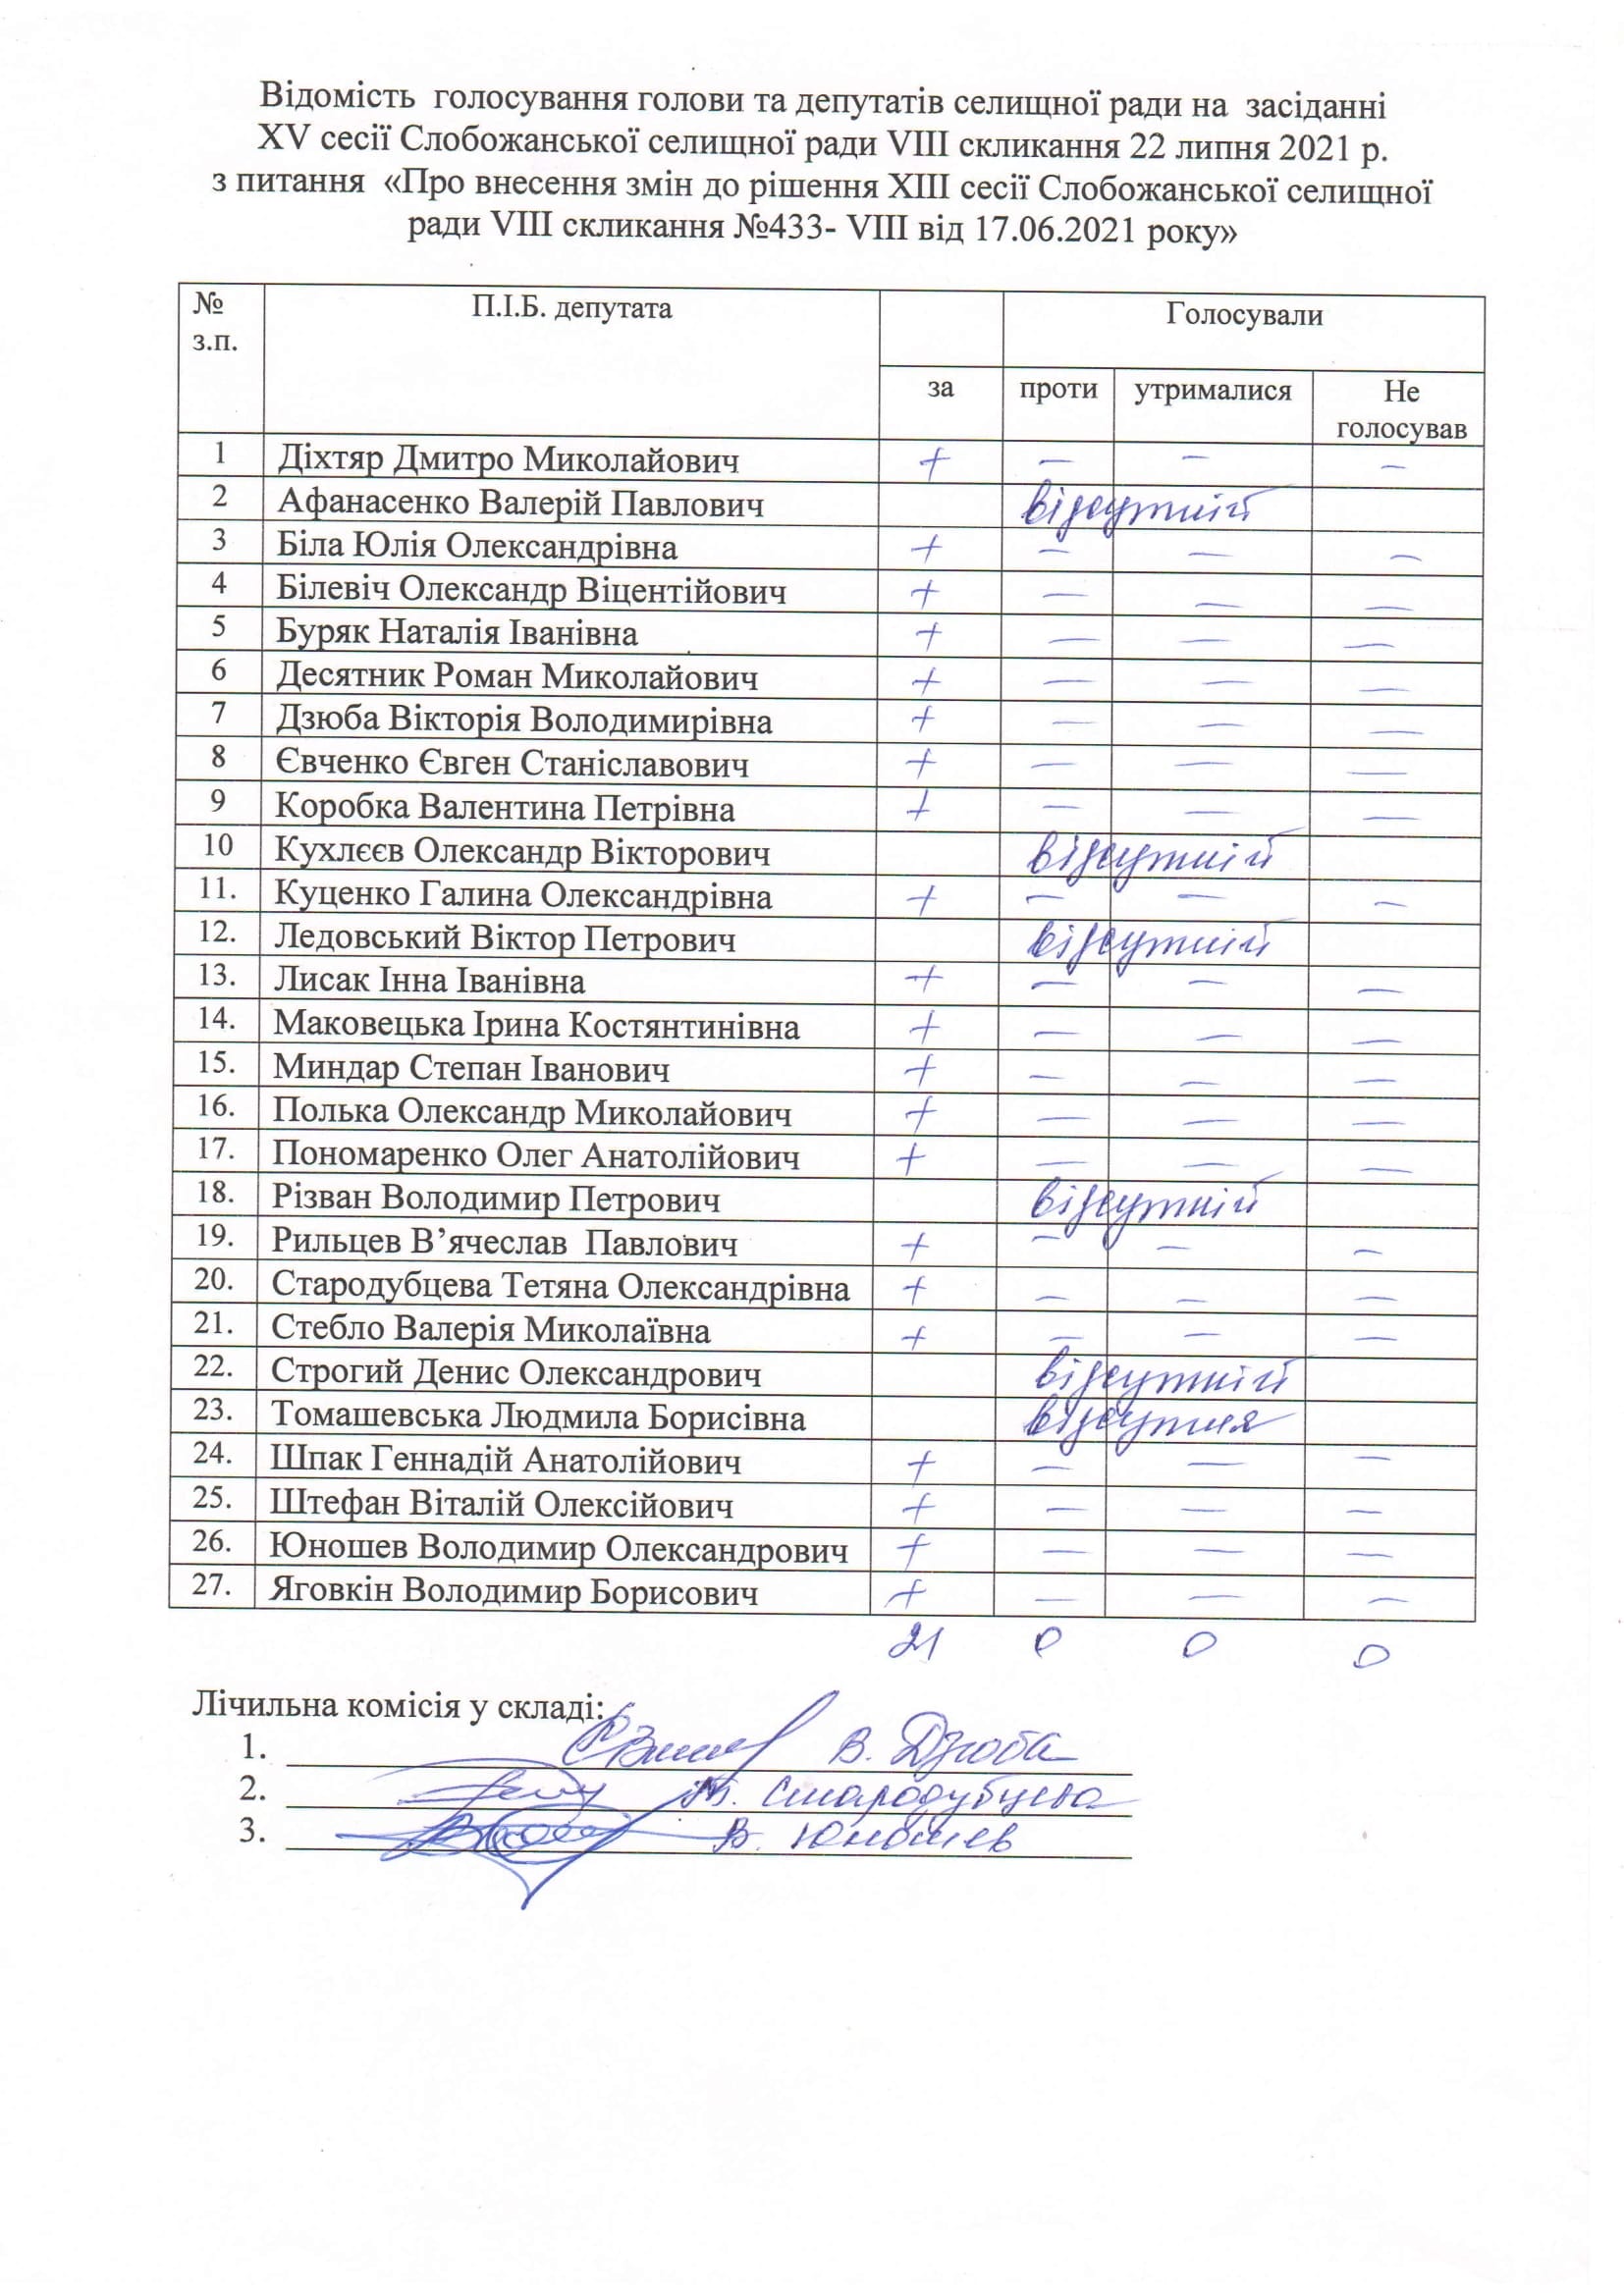 Відомість голосування голови та депутатів селищної ради на засіданні
XV сесії Слобожанської селищної ради VIII скликання 22 липня 2021 р.
з питання «Про внесення змін до рішення XIII сесії Слобожанської селищної
ради VIII скликання №433- VIII від 17.06.2021 року»
№ з.п. П.І.Б. депутата Голосували
за проти утрималися Не голосував
1 Діхтяр Дмитро Миколайович + – – –
2 Афанасенко Валерій Павлович відсутній
3 Біла Юлія Олександрівна + – – –
4 Білевіч Олександр Віцентійович + – – –
5 Буряк Наталія Іванівна + – – –
6 Десятник Роман Миколайович + – – –
7 Дзюба Вікторія Володимирівна + – – –
8 Євченко Євген Станіславович + – – –
9 Коробка Валентина Петрівна + – – –
10 Кухлєєв Олександр Вікторович відсутній
11. Куценко Галина Олександрівна + – – –
12. Ледовський Віктор Петрович відсутній
13. Лисак Інна Іванівна + – – –
14. Маковецька Ірина Костянтинівна + – – –
15. Миндар Степан Іванович + – – –
16. Полька Олександр Миколайович + – – –
17. Пономаренко Олег Анатолійович + – – –
18. Різван Володимир Петрович відсутній
19. Рильцев В’ячеслав Павлович + – – –
20. Стародубцева Тетяна Олександрівна + – – –
21. Стебло Валерія Миколаївна + – – –
22. Строгий Денис Олександрович відсутній
23. Томашевська Людмила Борисівна відсутня
24. Шпак Геннадій Анатолійович + – – –
25. Штефан Віталій Олексійович + – – –
26. Юношев Володимир Олександрович + – – –
27. Яговкін Володимир Борисович + – – –
21 0 0 0
Лічильна комісія у складі:
1. В. Дзюба
2. Т. Стародубцева
3. В. Юношев